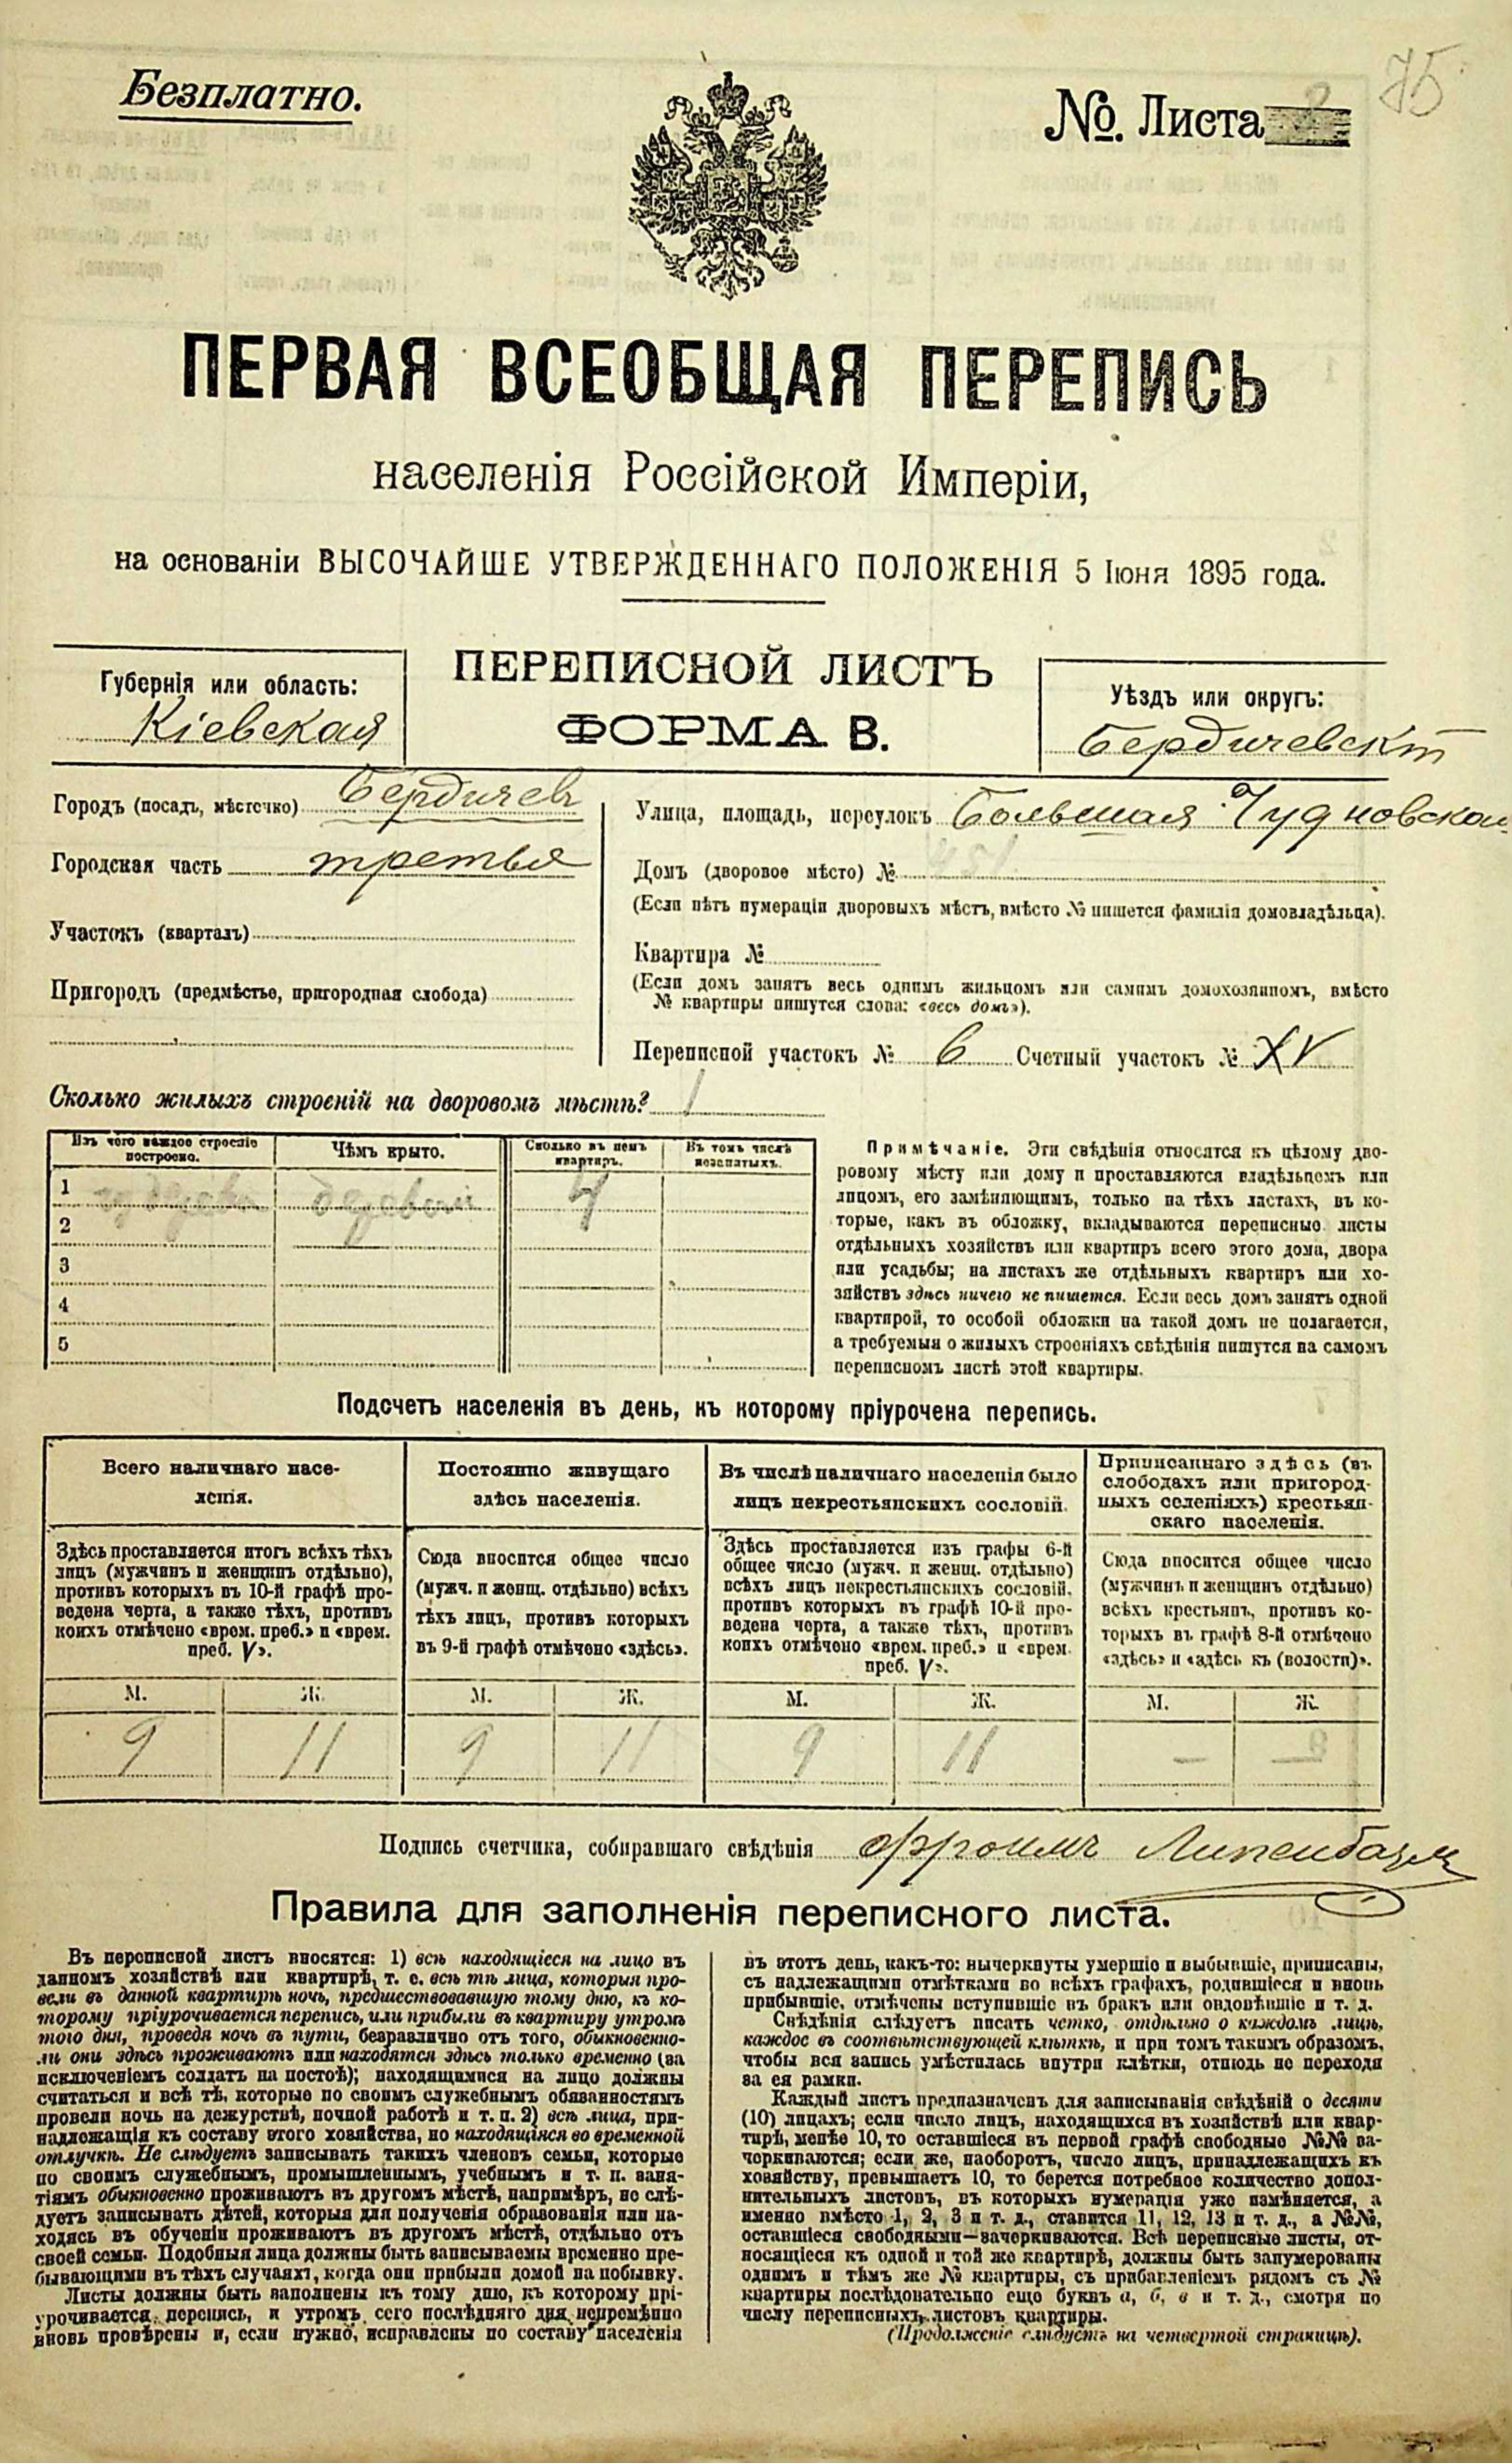 Безплатно.
№. Листа
75
ПЕРВАЯ ВСЕОБЩАЯ ПЕРЕПИСЬ
населенія Россійской Имперіи,
на основаніи ВЫСОЧАЙШЕ УТВЕРЖДЕННАГО ПОЛОЖЕНІЯ 5 Іюня 1895 года.
Губернія или область:
Кіевская
ПЕРЕПИСНОЙ ЛИСТЪ
ФОРМА В.
Уѣздъ или округъ:
Бердичевскій
Городъ (посадъ, мѣстечко) Бердичев
Городская часть третья
Участокъ (кварталъ)
Пригородъ (предмѣстье, пригородная слобода)
Улица, площадь, переулокъ Большая Чудновская
Домъ (дворовое мѣсто) №
(Если нѣтъ нумераціи дворовыхъ мѣстъ, вмѣсто № пишется фамилія домовладѣльца).
Квартира №
(Если домъ занятъ весь однимъ жильцомъ или самимъ домохозяиномъ, вмѣсто
№ квартиры пишутся слова: «весь домъ»).
Переписной участокъ № 6 Счетный участокъ № XV
Сколько жилыхъ строеній на дворовомъ мѣстѣ? 1
Изъ чего каждое строеніе построено.
Чѣмъ крыто.
Сколько въ немъ квартиръ.
Въ томъ числѣ незанятыхъ.
1 4
2
3
4
5
Примѣчаніе. Эти свѣдѣнія относятся къ цѣлому дво-
ровому мѣсту или дому и проставляются владѣльцемъ или
лицомъ, его замѣняющимъ, только на тѣхъ листахъ, въ ко-
торые, какъ въ обложку, вкладываются переписные листы
отдѣльныхъ хозяйствъ или квартиръ всего этого дома, двора
или усадьбы; на листахъ же отдѣльныхъ квартиръ или хо-
зяйствъ здѣсь ничего не пишется. Если весь домъ занятъ одной
квартирой, то особой обложки на такой домъ не полагается,
а требуемыя о жилыхъ строеніяхъ свѣдѣнія пишутся на самомъ
переписномъ листѣ этой квартиры.
Подсчетъ населенія въ день, къ которому пріурочена перепись.
Всего наличнаго насе-
ленія.
Здѣсь проставляется итогъ всѣхъ тѣхъ
лицъ (мужчинъ и женщинъ отдѣльно),
противъ которыхъ въ 10-й графѣ про-
ведена черта, а также тѣхъ, противъ
коихъ отмѣчено «врем. преб.» и «врем.
преб. V».
Постоянно живущаго
здѣсь населенія.
Сюда вносится общее число
(мужч. и женщ. отдѣльно) всѣхъ
тѣхъ лицъ, противъ которыхъ
въ 9-й графѣ отмѣчено «здѣсь».
Въ числѣ наличнаго населенія было
лицъ некрестьянскихъ сословій.
Здѣсь проставляется изъ графы 6-й
общее число (мужч. и женщ. отдѣльно)
всѣхъ лицъ некрестьянскихъ сословій,
противъ которыхъ въ графѣ 10-й про-
ведена черта, а также тѣхъ, противъ
коихъ отмѣчено «врем. преб.» и «врем.
преб. V».
Приписаннаго здѣсь (въ
слободахъ или пригород-
ныхъ селеніяхъ) крестьян-
скаго населенія.
Сюда вносится общее число
(мужчинъ и женщинъ отдѣльно)
всѣхъ крестьянъ, противъ ко-
торыхъ въ графѣ 8-й отмѣчено
«здѣсь» и «здѣсь къ (волости)».
М. Ж. М. Ж. М. Ж. М. Ж.
9 11 9 11 9 11 – –
Подпись счетчика, собиравшаго свѣдѣнія Фроимъ
Правила для заполненія переписного листа.
Въ переписной листъ вносятся: 1) всѣ находящіеся на лицо въ
данномъ хозяйствѣ или квартирѣ, т. е. всѣ тѣ лица, которыя про-
вели въ данной квартирѣ ночь, предшествовавшую тому дню, къ ко-
торому пріурочивается перепись, или прибыли въ квартиру утромъ
того дня, проведя ночь въ пути, безразлично отъ того, обыкновенно-
ли они здѣсь проживаютъ или находятся здѣсь только временно (за
исключеніемъ солдатъ на постоѣ); находящимися на лицо должны
считаться и всѣ тѣ, которые по своимъ служебнымъ обязанностямъ
провели ночь на дежурствѣ, ночной работѣ и т. п. 2) всѣ лица, при-
надлежащія къ составу этого хозяйства, но находящіяся во временной
отлучкѣ. Не слѣдуетъ записывать такихъ членовъ семьи, которые
по своимъ служебнымъ, промышленнымъ, учебнымъ и т. п. заня-
тіямъ обыкновенно проживаютъ въ другомъ мѣстѣ, напримѣръ, не слѣ-
дуетъ записывать дѣтей, которыя для полученія образованія или на-
ходясь въ обученіи проживаютъ въ другомъ мѣстѣ, отдѣльно отъ
своей семьи. Подобныя лица должны быть записываемы временно пре-
бывающими въ тѣхъ случаяхъ, когда они прибыли домой на побывку.
Листы должны быть заполнены къ тому дню, къ которому прі-
урочивается перепись, и утромъ сего послѣдняго дня непремѣнно
вновь провѣрены и, если нужно, исправлены по составу населенія
въ этотъ день, какъ-то: вычеркнуты умершіе и выбывшіе, приписаны,
съ надлежащими отмѣтками во всѣхъ графахъ, родившіеся и вновь
прибывшіе, отмѣчены вступившіе въ бракъ или овдовѣвшіе и т. д.
Свѣдѣнія слѣдуетъ писать четко, отдѣльно о каждомъ лицѣ,
каждое въ соотвѣтствующей клѣткѣ, и при томъ такимъ образомъ,
чтобы вся запись умѣстилась внутри клѣтки, отнюдь не переходя
за ея рамки.
Каждый листъ предназначенъ для записыванія свѣдѣній о десяти
(10) лицахъ; если число лицъ, находящихся въ хозяйствѣ или квар-
тирѣ, менѣе 10, то оставшіеся въ первой графѣ свободные №№ за-
черкиваются; если же, наоборотъ, число лицъ, принадлежащихъ къ
хозяйству, превышаетъ 10, то берется потребное количество допол-
нительныхъ листовъ, въ которыхъ нумерація уже измѣняется, а
именно вмѣсто 1, 2, 3 и т. д., ставится 11, 12, 13 и т. д., а №№,
оставшіеся свободными—зачеркиваются. Всѣ переписные листы, от-
носящіеся къ одной и той же квартирѣ, должны быть занумерованы
однимъ и тѣмъ же № квартиры, съ прибавленіемъ рядомъ съ №
квартиры послѣдовательно еще буквъ а, б, в и т. д., смотря по
числу переписныхъ листовъ квартиры.
(Продолженіе слѣдуетъ на четвертой страницѣ).